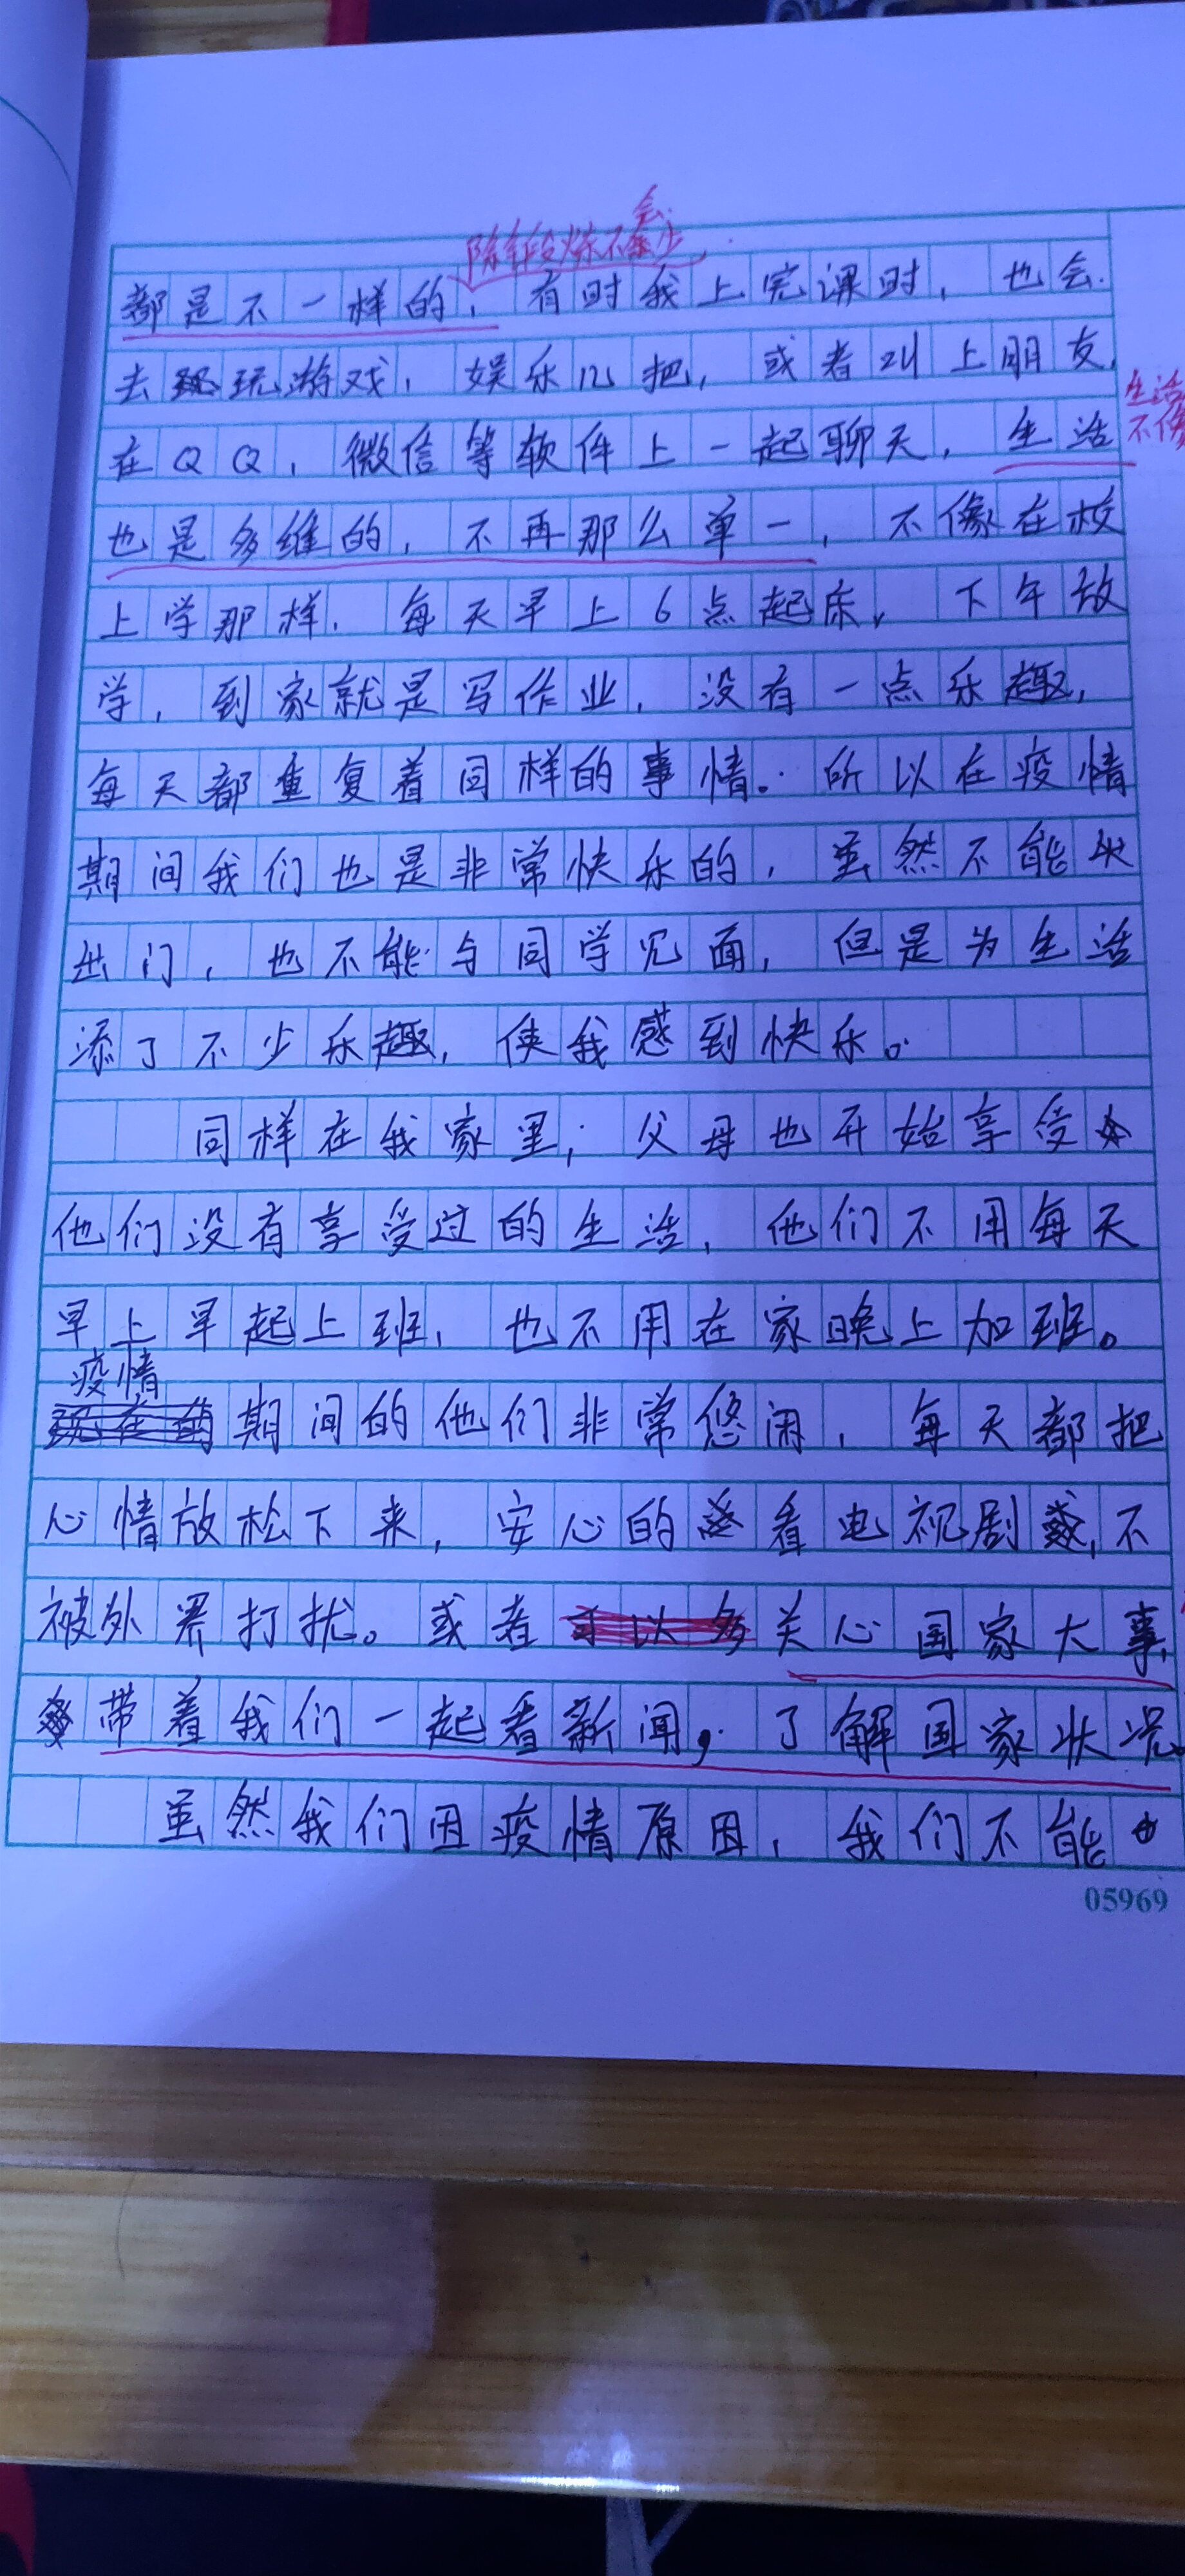 会
除锻炼不会少
都是不一样的，有时我上完课时，也会
去玩游戏，娱乐几把，或者叫上朋友，
在QQ，微信等软件上一起聊天，生活
生活
不像
也是多维的，不再那么单一，不像在校
上学那样，每天早上6点起床，下午放
学，到家就是写作业，没有一点乐趣，
每天都重复着同样的事情。所以在疫情
期间我们也是非常快乐的，虽然不能
出门，也不能与同学见面，但是为生活
添了不少乐趣，使我感到快乐。
同样在我家里，父母也开始享受
他们没有享受过的生活，他们不用每天
早上早起上班，也不用在家晚上加班。
疫情
期间的他们非常悠闲，每天都把
心情放松下来，安心的看电视剧，不
被外界打扰。或者可以多关心国家大事，
带着我们一起看新闻，了解国家状况。
虽然我们因疫情原因，我们不能
05969